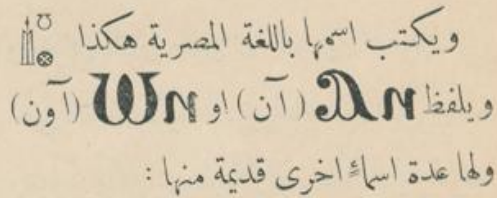 ويكتب اسمها باللغة المصرية هكذا
ويلفظ ⲀⲚ (آن) او ⲰⲚ (آون)
ولها عدة اسماءٍ اخرى قديمة منها :